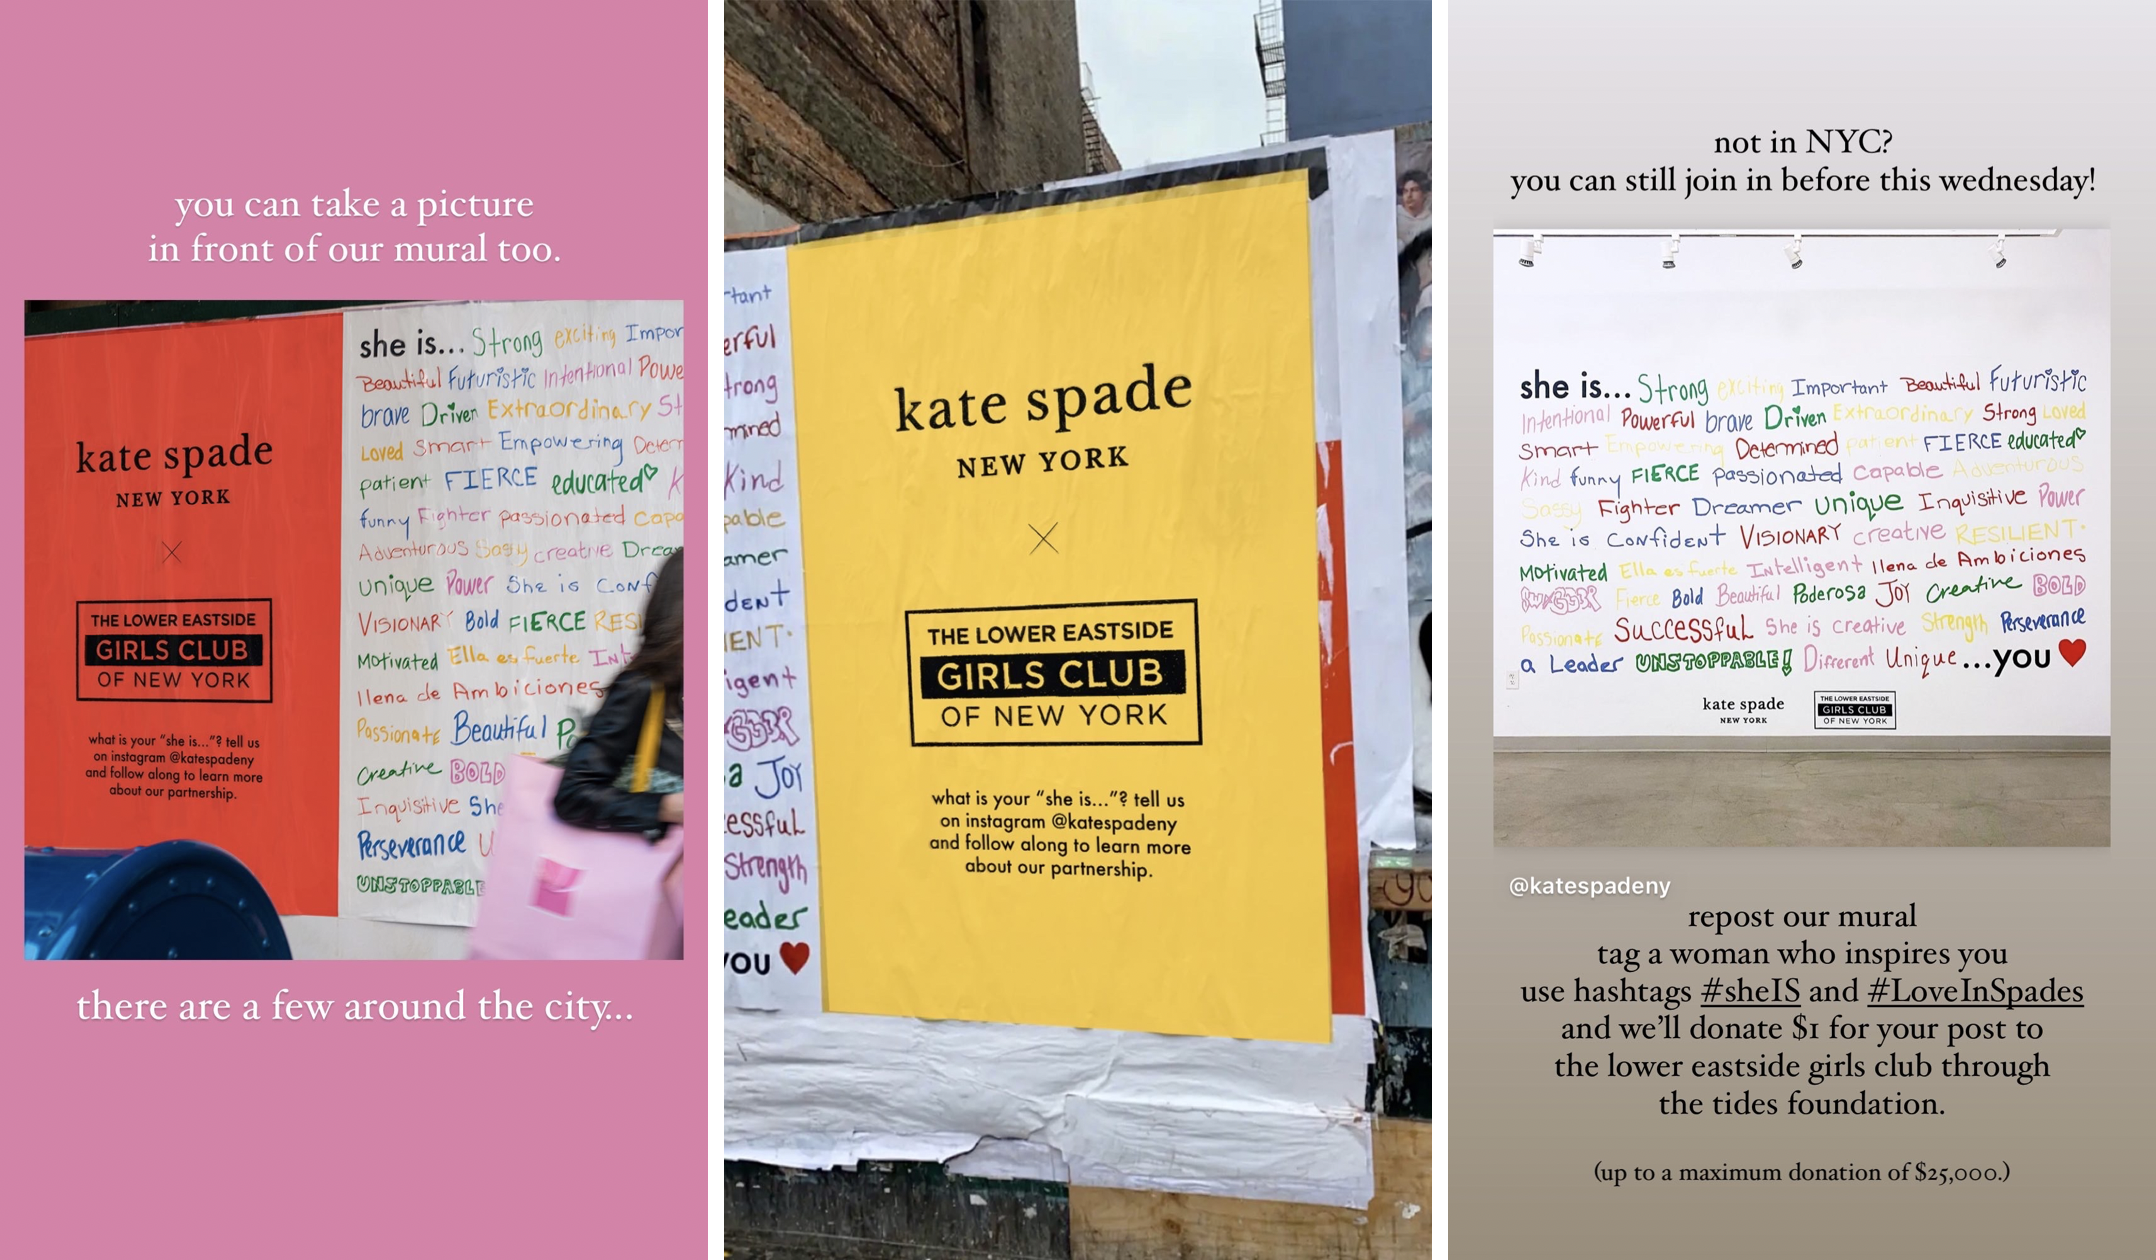 you can take a picture
in front of our mural too.
she is... Strong exciting Impor
Beautiful Futuristic Intentional Powe
brave Driven Extraordinary St
Loved Smart Empowering Deter
patient FIERCE educated K
funny Fighter passionated Capa
Adventurous Sassy creative Drea
unique Power She is Conf
VISIONARY Bold FIERCE RESI
Motivated Ella es fuerte Int
llena de Ambiciones
Passionate Beautiful Po
Creative BOLD
Inquisitive She
Perseverance U
UNSTOPPABLE
kate spade
NEW YORK
X
THE LOWER EASTSIDE
GIRLS CLUB
OF NEW YORK
what is your "she is..."? tell us
on instagram @katespadeny
and follow along to learn more
about our partnership.
there are a few around the city...
rtant
erful
trong
mined
Kind
pable
amer
dent
IENT.
igent
GGER
a Joy
essful
Strength
eader
you
kate spade
NEW YORK
X
THE LOWER EASTSIDE
GIRLS CLUB
OF NEW YORK
what is your "she is..."? tell us
on instagram @katespadeny
and follow along to learn more
about our partnership.
not in NYC?
you can still join in before this wednesday!
she is... Strong exciting Important Beautiful Futuristic
Intentional Powerful brave Driven Extraordinary Strong Loved
Smart Empowering Determined patient FIERCE educated
Kind funny FIERCE passionated Capable Adventurous
Sassy Fighter Dreamer unique Inquisitive Power
She is Confident VISIONARY creative RESILIENT.
Motivated Ella es fuerte Intelligent llena de Ambiciones
SWAGGER Fierce Bold Beautiful Poderosa Joy Creative BOLD
Passionate Successful She is creative Strength Perseverance
a Leader UNSTOPPABLE! Different Unique ...you
kate spade
NEW YORK
THE LOWER EASTSIDE
GIRLS CLUB
OF NEW YORK
@katespadeny
repost our mural
tag a woman who inspires you
use hashtags #sheIS and #LoveInSpades
and we'll donate $1 for your post to
the lower eastside girls club through
the tides foundation.
(up to a maximum donation of $25,000.)